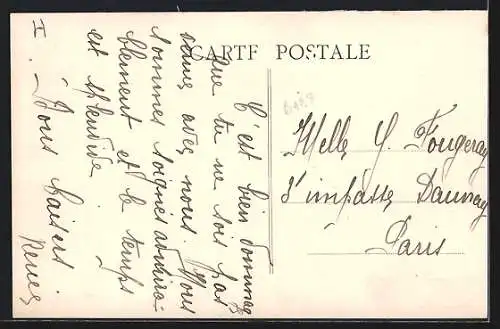 I
CARTE POSTALE
C'est bien dommage
que tu ne sois pas
venue avec nous. Nous
sommes soignés admira-
blement et le temps
est splendide.
Bons baisers.
Renée
Melle G. Fougeray
3 impasse Daunay
Paris